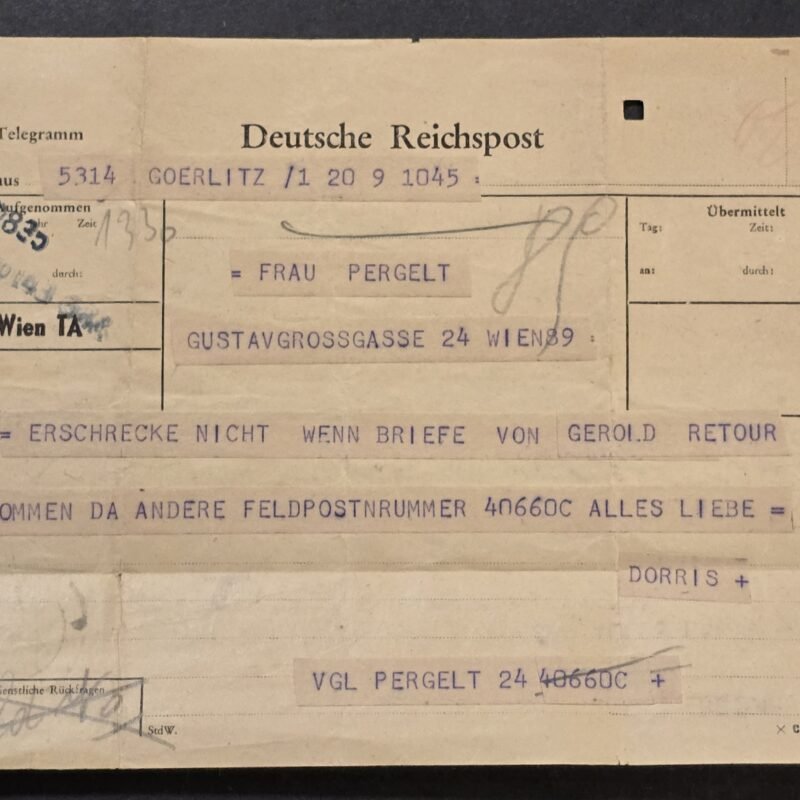 Telegramm
Deutsche Reichspost
aus 5314 GOERLITZ /1 20 9 1045 =
Aufgenommen
Zeit
1330
durch:
Wien TA
Übermittelt
Tag: Zeit:
an: durch:
= FRAU PERGELT
GUSTAVGROSSGASSE 24 WIEN89 =
= ERSCHRECKE NICHT WENN BRIEFE VON GEROLD RETOUR
OMMEN DA ANDERE FELDPOSTNRUMMER 40660C ALLES LIEBE =
DORRIS +
VGL PERGELT 24 40660C +
enstliche Rückfragen
StdW.
× C